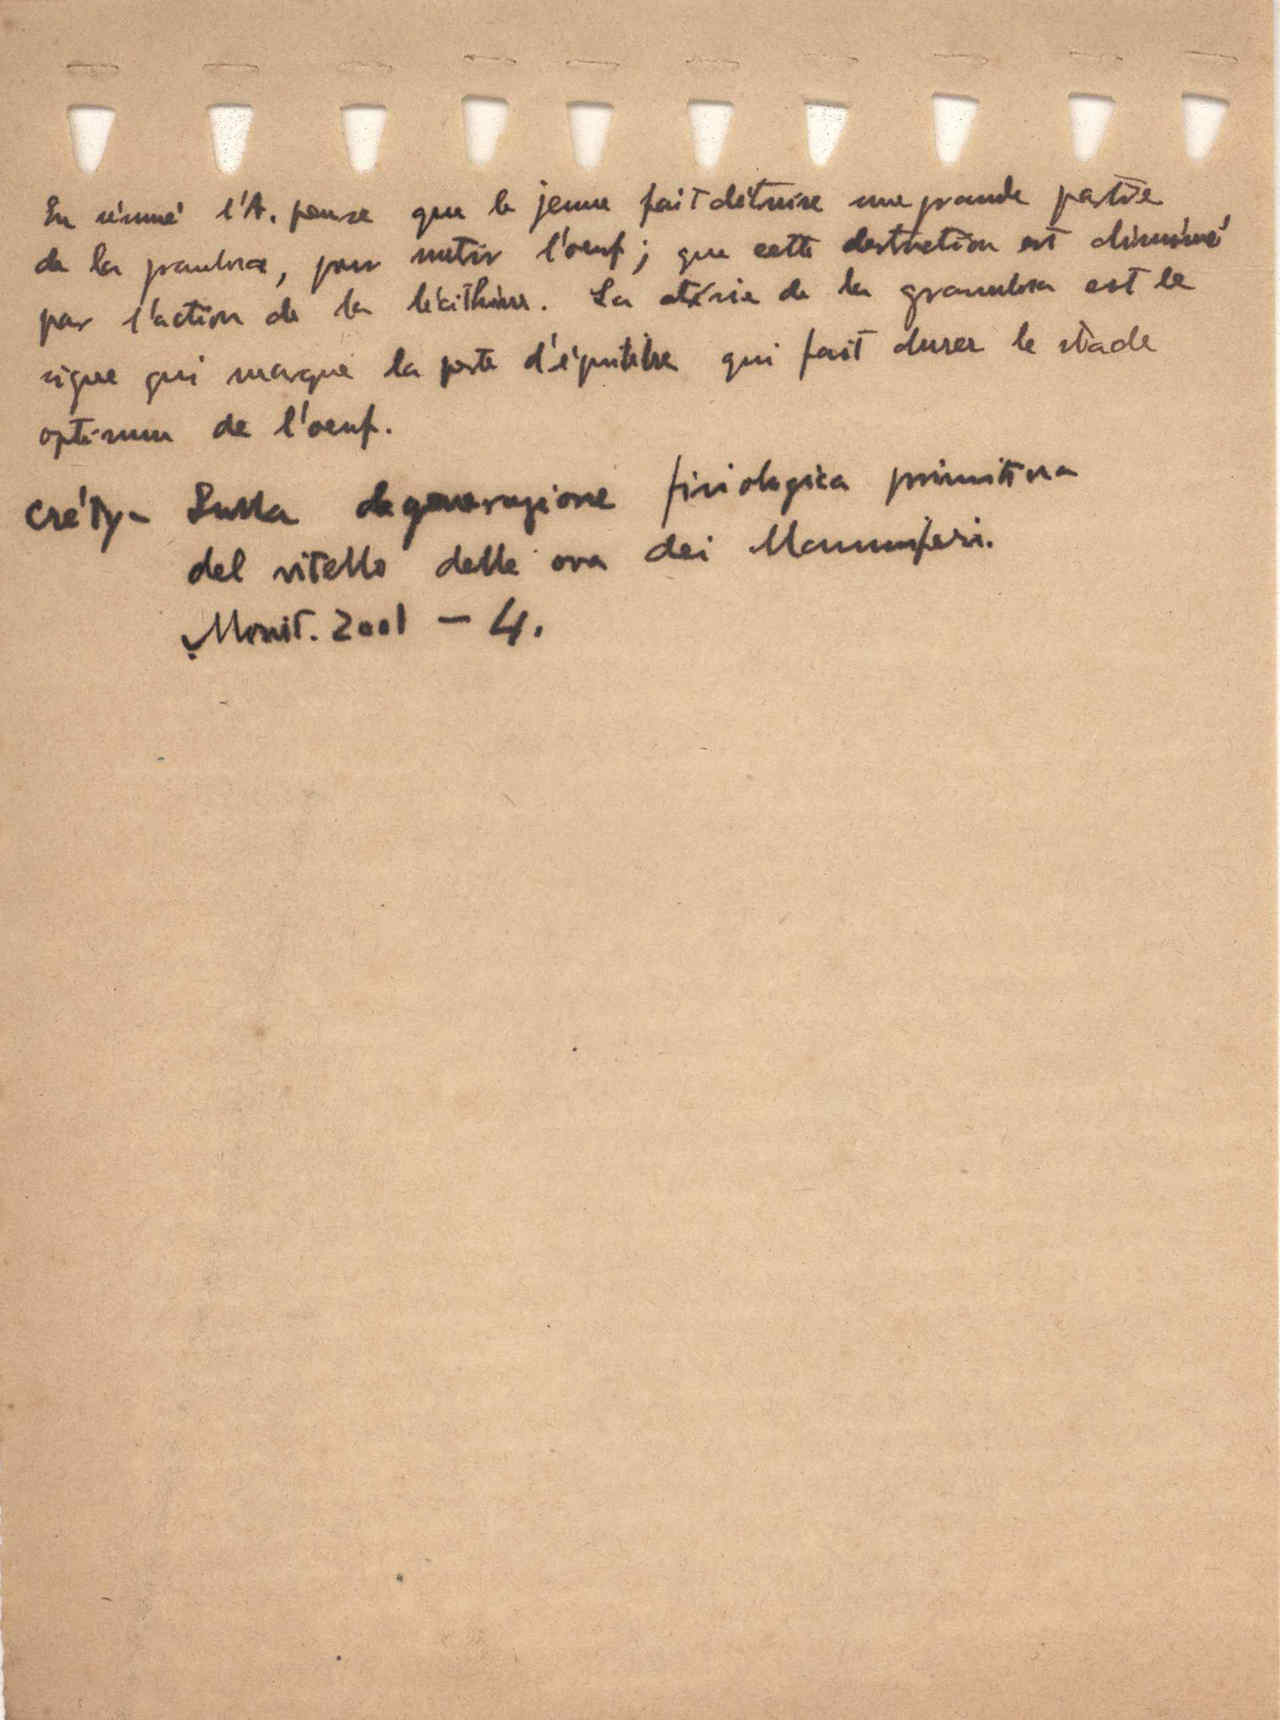 En résumé l'A. pense que le jeune fait détruire une grande partie
de la granulosa, pour nutrir l'oeuf; que cette destruction est diminué
par l'action de la lécithine. La atrésie de la granulosa est le
signe qui marque la perte d'équilibre qui fait durer le stade
optimum de l'oeuf.
Créty - Sulla degenerazione fisiologica primitiva
del vitello delle ova dei Mammiferi.
Monit. Zool - 4.